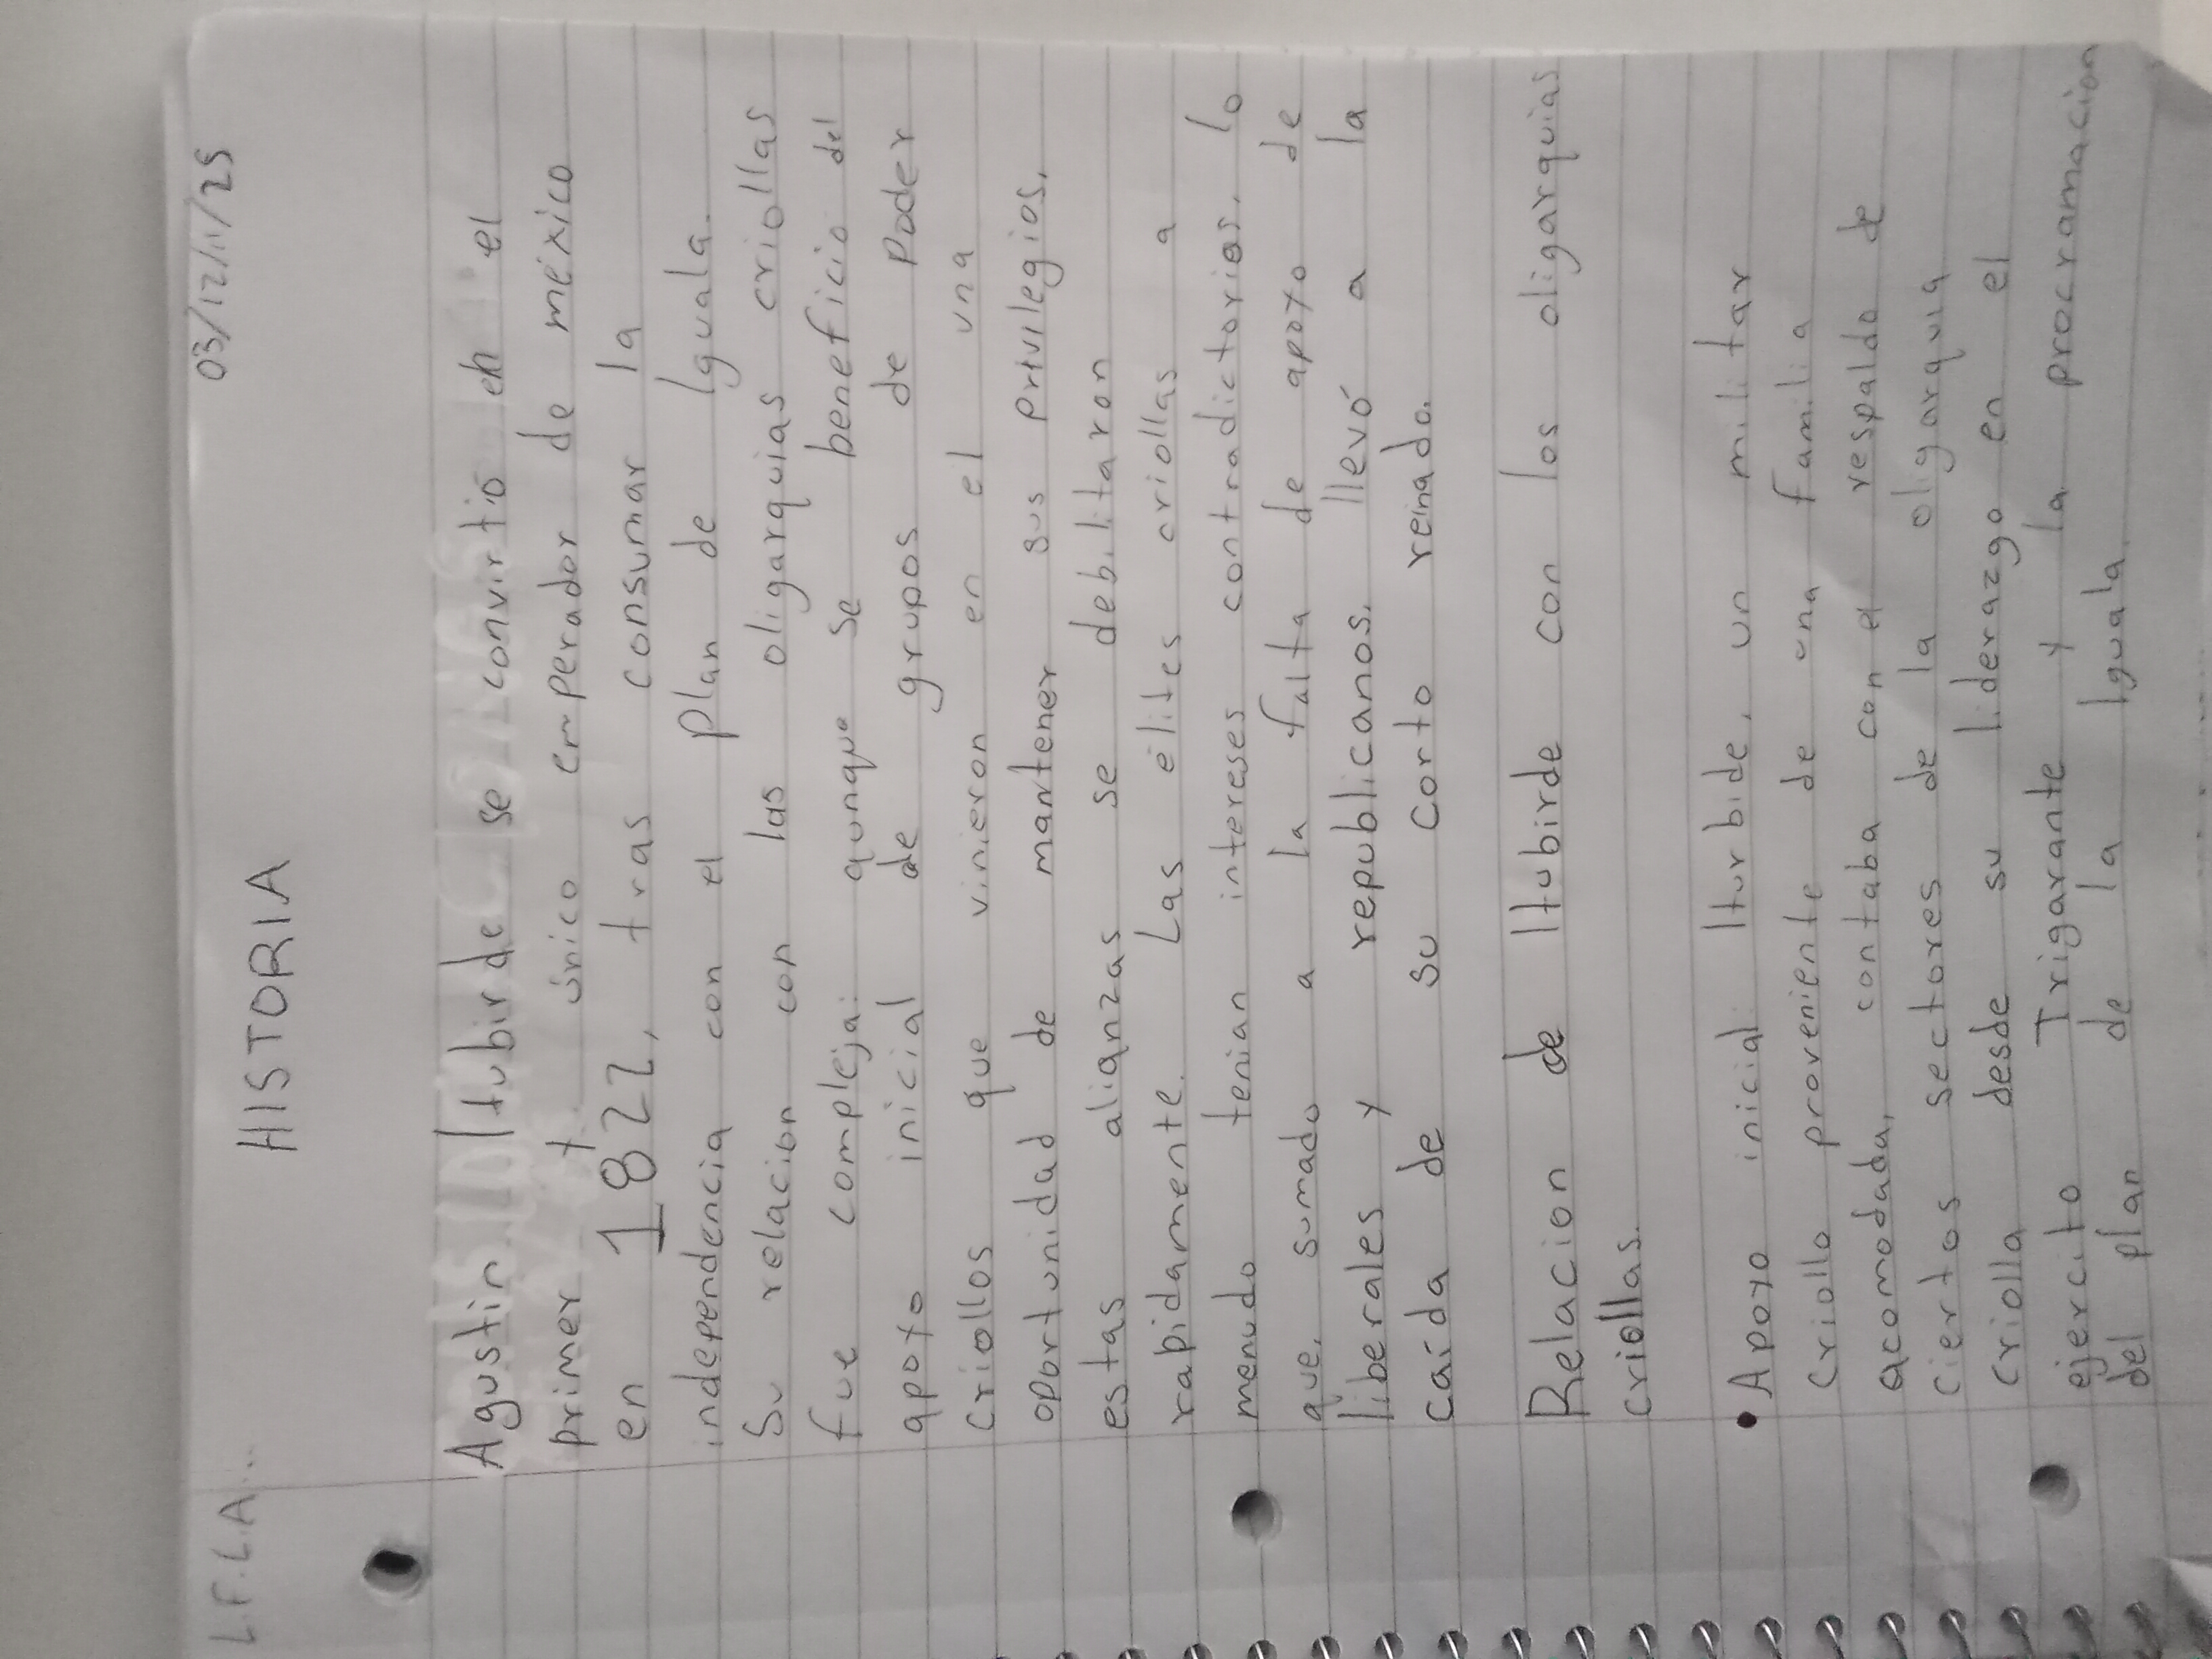 L.F.L.A... 03/12/11/25
HISTORIA
Agustin Itubirde se convirtió en el
primer y único emperador de méxico
en 1822, tras consumar la
independencia con el plan de Iguala.
Su relacion con las oligarquias criollas
fue compleja: aunque se beneficio del
apoyo inicial de grupos de poder
criollos que vinieron en el una
oportunidad de mantener sus privilegios,
estas alianzas se debilitaron
rapidamente. Las élites criollas a
menudo tenian intereses contradictorios, lo
que, sumado a la falta de apoyo de
liberales y republicanos, llevó a la
caída de su corto reinado.
Relacion de Itubirde con los oligarquias
criollas.
• Apoyo inicial: Iturbide, un militar
criollo proveniente de una familia
acomodada, contaba con el respaldo de
ciertos sectores de la oligarquia
criolla desde su liderazgo en el
ejercito Trigarante y la procramacion
del plan de la Iguala.